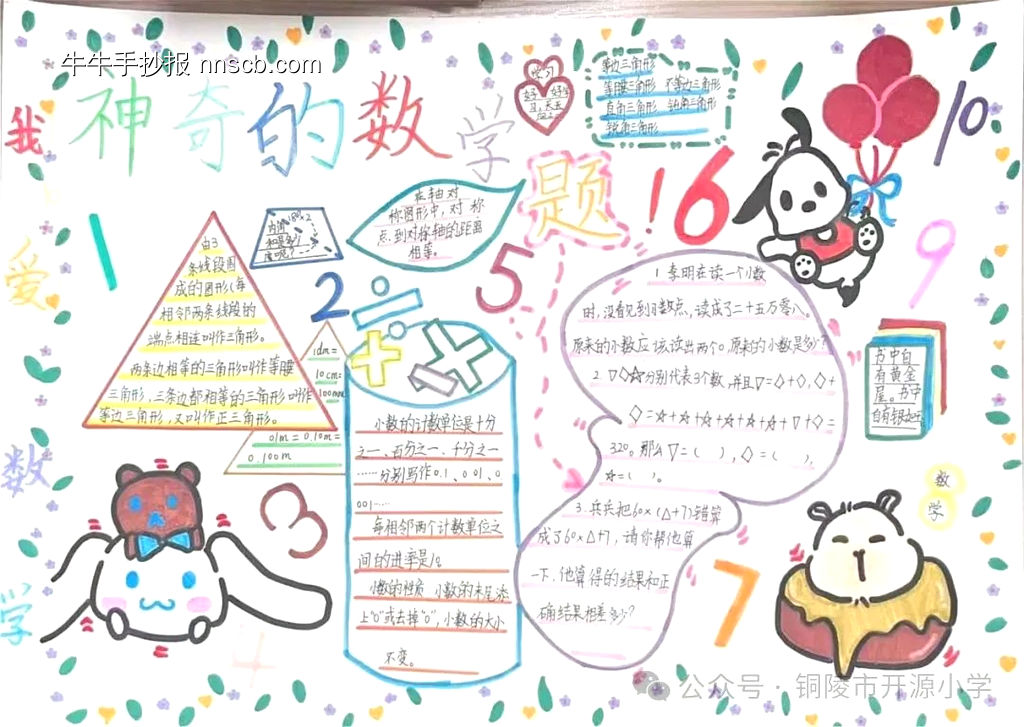 牛牛手抄报 nnscb.com
神奇的数学题!
我爱数学
学习
等边三角形
等腰三角形 不等边三角形
直角三角形 钝角三角形
锐角三角形
1
2
3
5
6
7
9
10
由3
条线段围
成的图形(每
相邻两条线段的
端点相连叫作三角形。
两条边相等的三角形叫作等腰
三角形,三条边都相等的三角形叫作
等边三角形,又叫作正三角形。
在轴对
称图形中,对称
点到对称轴的距离
相等。
1dm=
10cm=
100mm
0.1m=0.10m=
0.100m
小数的计数单位是十分
之一、百分之一、千分之一
……分别写作0.1、0.01、0
001……
每相邻两个计数单位之
间的进率是10
小数的性质 小数的末尾添
上"0"或去掉"0",小数的大小
不变。
1 李明在读一个小数
时,没看见到小数点,读成了二十五万零八。
原来的小数应该读出两个0。原来的小数是多少?
2 ▽◇☆分别代表3个数,并且▽=◇+◇,◇+
◇=☆+☆+☆+☆+☆+☆+▽+◇=
320。那么▽=( ),◇=( ),
☆=( )。
3.兵兵把60×(△+7)错算
成了60×△+7,请你帮他算
一下,他算得的结果和正
确结果相差多少?
书中自
有黄金
屋。书中
自有
数学
公众号·铜陵市开源小学